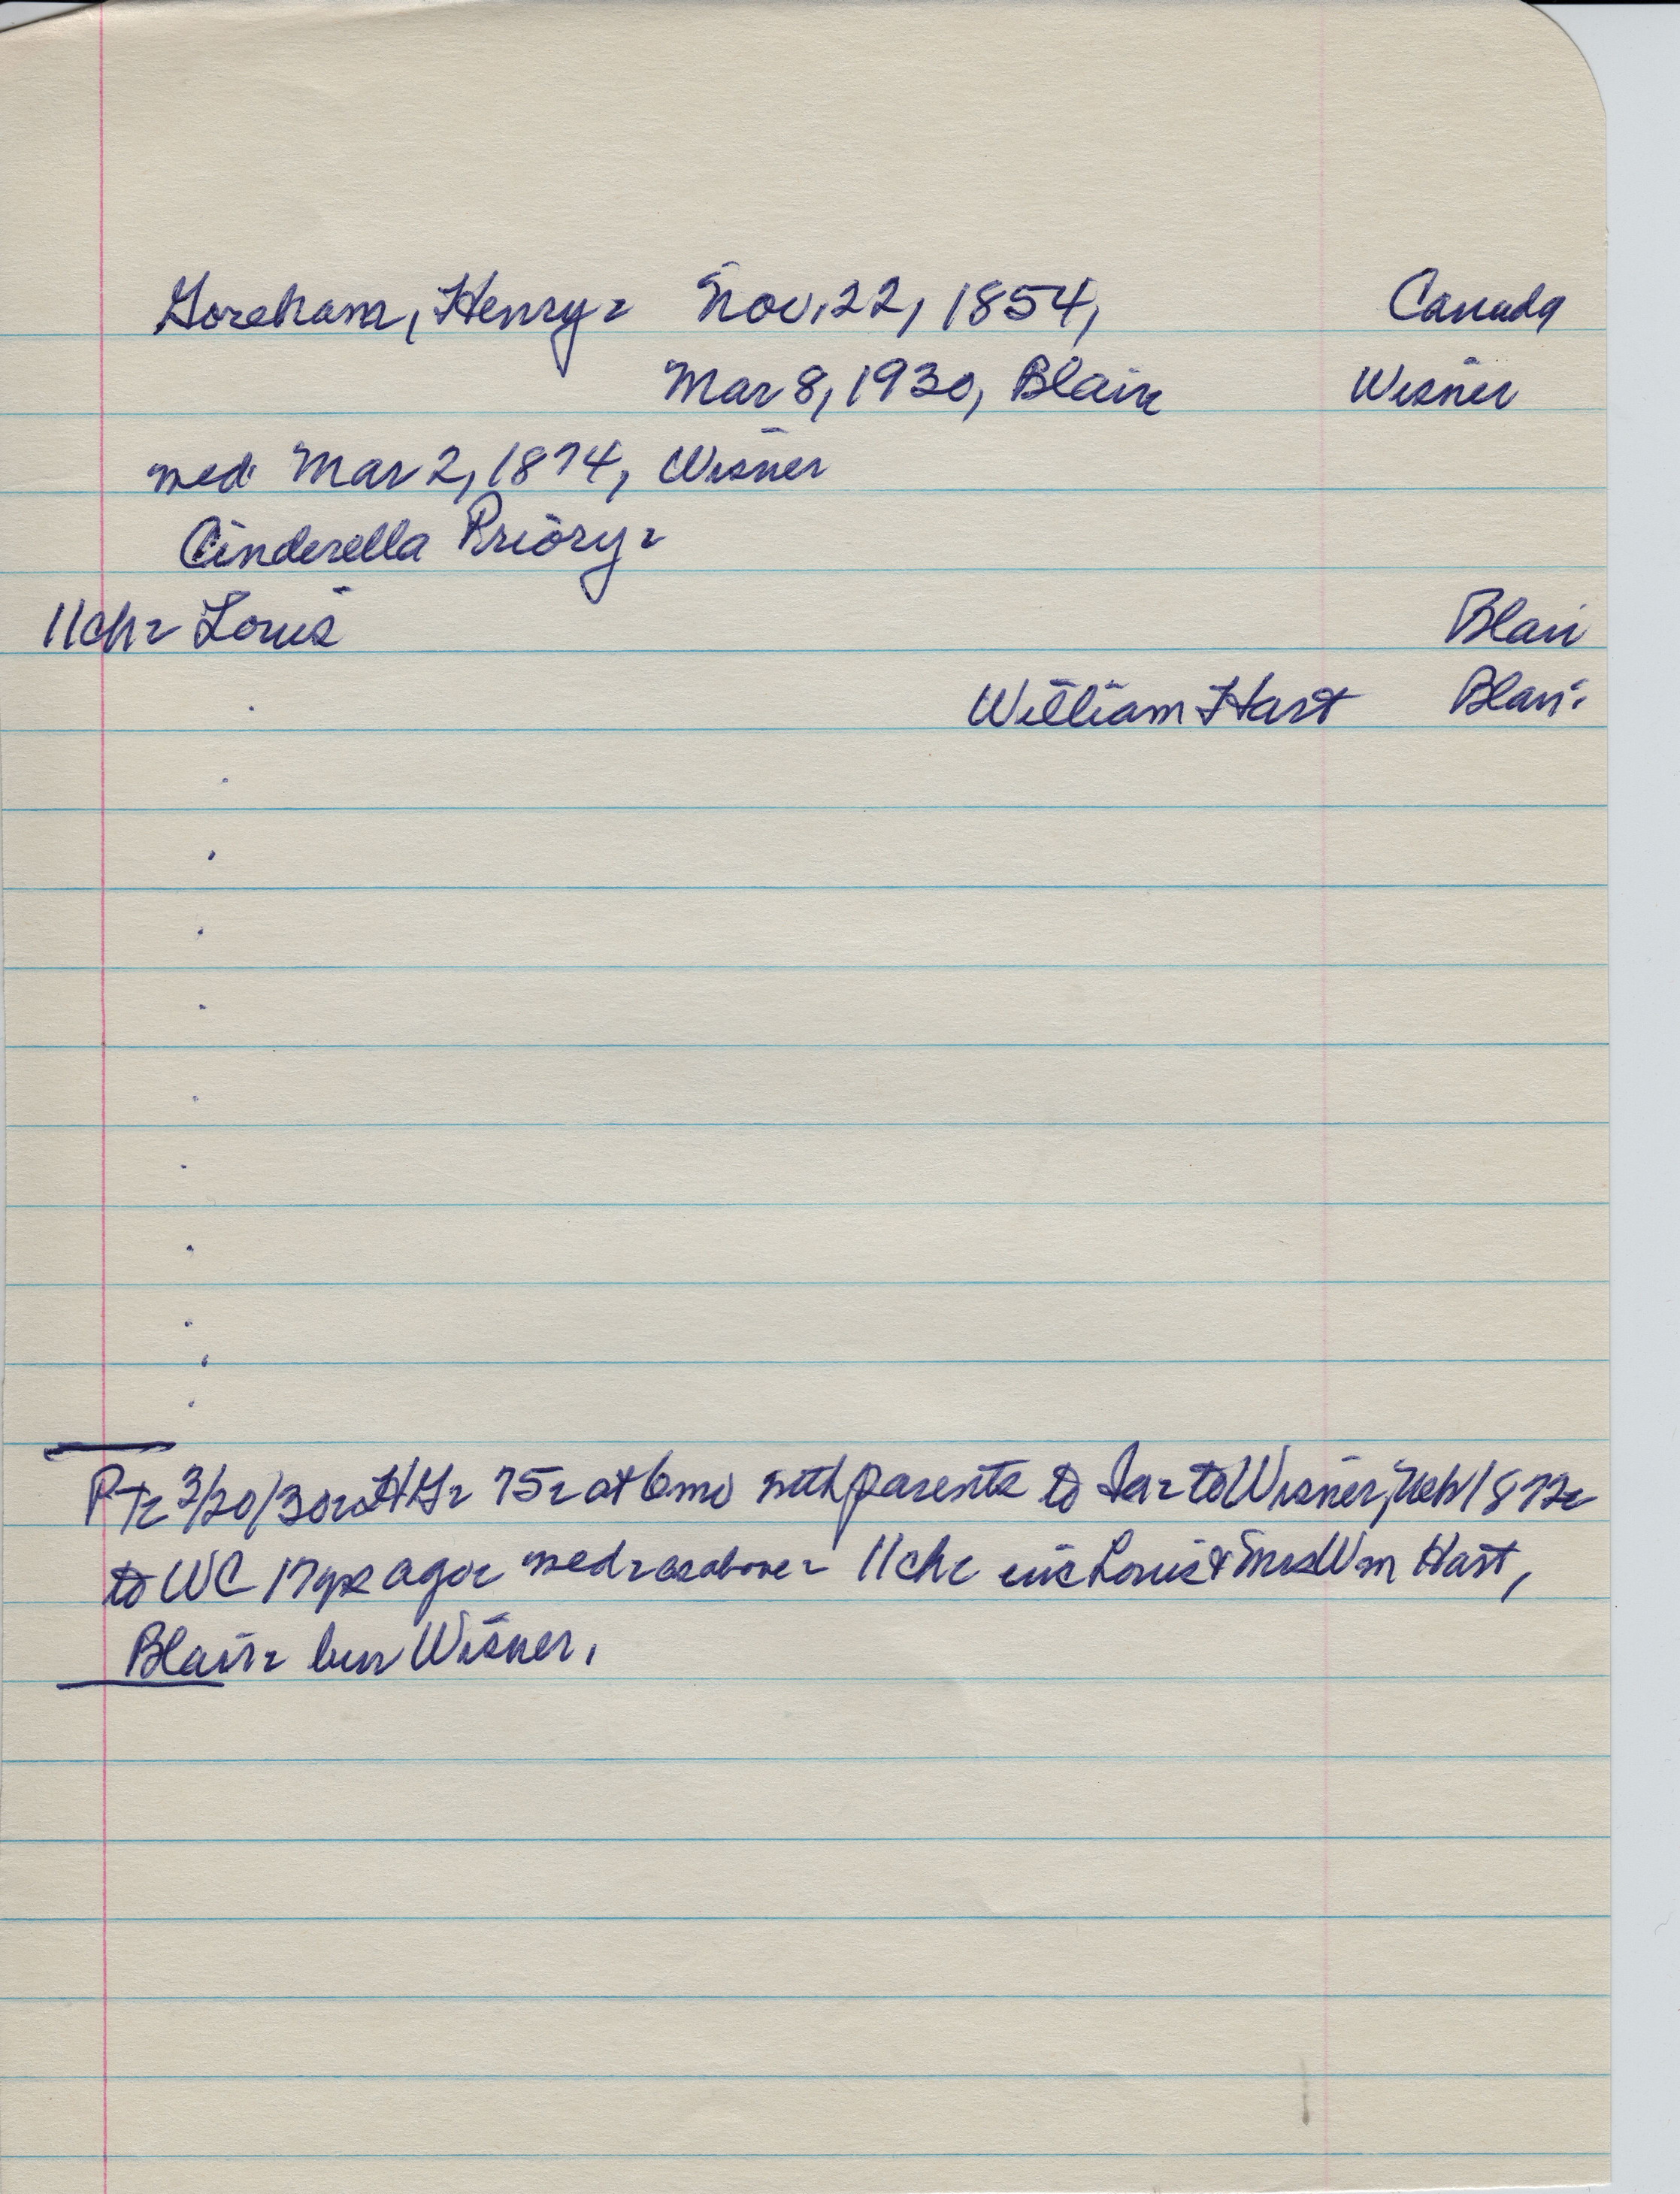 Goreham, Henry- Nov. 22, 1854, Canada
Mar 8, 1930, Blair Wisner
med Mar 2, 1874, Wisner
Cinderella Priory-
11ch- Louis Blair
William Hart Blair
PT- 3/20/30- HG- 75- at 6mo with parents to Ia- to Wisner, Neb 1872-
to WC 17 yrs ago- med- as above- 11ch- inc Louis & Mrs Wm Hart,
Blair- bur Wisner.